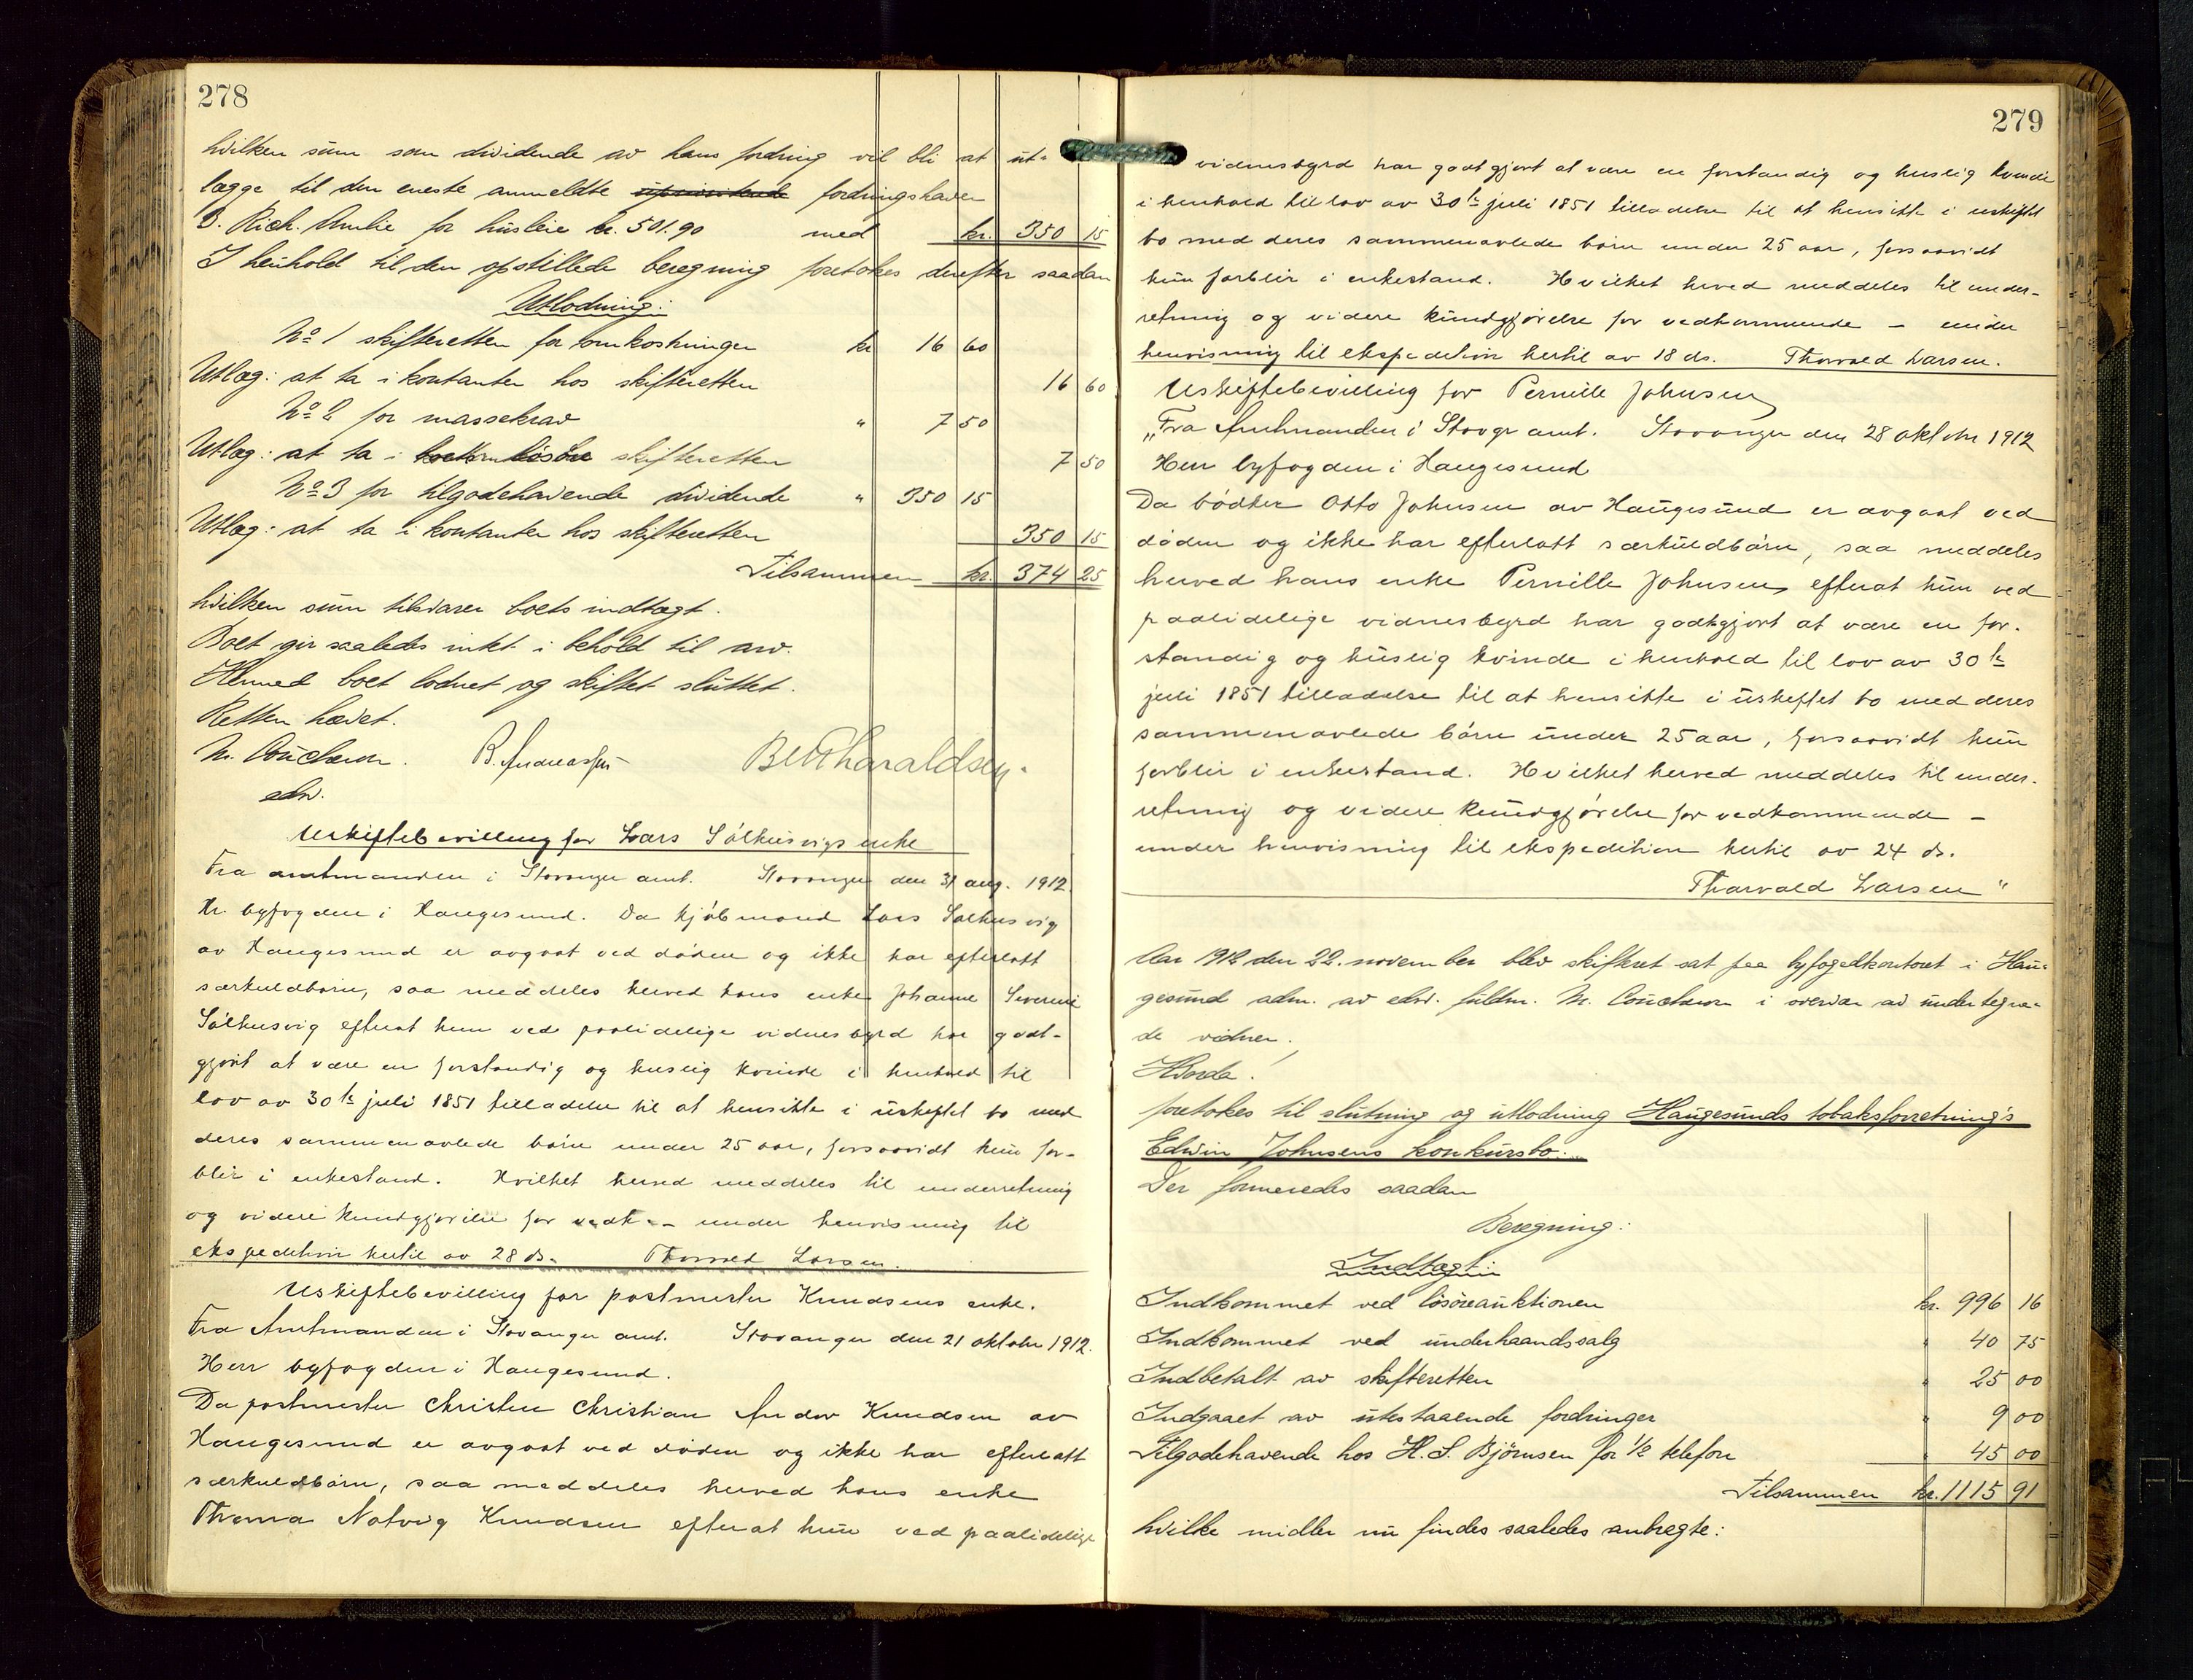 278
hvilken sum som dividende av hans fordring vil bli at ut-
lægge til den eneste anmeldte fordringshaver
O. Rich. Amlie for husleie kr. 501.90 med kr. 350 15
I henhold til den opstillede beregning foretokes derefter saadan
Utlodning:
No 1 skifteretten for omkostninger kr 16 60
Utlæg: at ta i kontanter hos skifteretten 16 60
No 2 for massekrav " 7 50
Utlæg: at ta i skifteretten 7 50
No 3 for tilgodehavende dividende " 350 15
Utlæg: at ta i kontanter hos skifteretten 350 15
Tilsammen kr. 374 25
hvilken sum tilsvarer boets indtægt.
Boet gir saaledes intet i behold til arv.
Hermed boet lodnet og skiftet sluttet.
Retten hævet.
M. Coucheron. B. Andreassen B Utharaldsen.
edw.
Uskiftebevilling for Lars Sålhusvigs enke
Fra amtmanden i Stavanger amt. Stavanger den 31 aug. 1912.
Hr. byfogden i Haugesund. Da kjøbmand Lars Salhusvig
av Haugesund er avgaat ved døden og ikke har efterlatt
særkuldbørn, saa meddeles herved hans enke Johanne Severine
Sålhusvig efterat hun ved paalidelige vidnesbyrd har godt-
gjort at være en forstandig og huslig kvinde i henhold til
lov av 30te juli 1851 tilladelse til at hensitte i uskiftet bo med
deres sammenavlede børn under 25 aar, forsaavidt hun for-
blir i enkestand. Hvilket herved meddeles til underretning
og videre kundgjørelse for vedk. - under henvisning til
ekspedition hertil av 28 ds. Thorvald Larsen.
Uskiftebevilling for postmester Knudsens enke.
Fra Amtmanden i Stavanger amt. Stavanger den 21 oktober 1912.
Herr byfogden i Haugesund.
Da postmester Christen Christian Andor Knudsen av
Haugesund er avgaat ved døden og ikke har efterlatt
særkuldbørn, saa meddeles herved hans enke
Thoma Natvig Knudsen efterat hun ved paalidelige
279
vidnesbyrd har godtgjort at være en forstandig og huslig kvinde
i henhold til lov av 30te juli 1851 tilladelse til at hensitte i uskiftet
bo med deres sammenavlede børn under 25 aar, forsaavidt
hun forblir i enkestand. Hvilket herved meddeles til under-
retning og videre kundgjørelse for vedkommende - under
henvisning til ekspedition hertil av 18 ds. Thorvald Larsen.
Uskiftebevilling for Pernille Johnsen
"Fra Amtmanden i Stavgr amt. Stavanger den 28 oktobr 1912
Herr byfogden i Haugesund
Da bødker Otto Johnsen av Haugesund er avgaat ved
døden og ikke har efterlatt særkuldbørn, saa meddeles
herved hans enke Pernille Johnsen efterat hun ved
paalidelige vidnesbyrd har godtgjort at være en for-
standig og huslig kvinde i henhold til lov av 30te
juli 1851 tilladelse til at hensitte i uskiftet bo med deres
sammenavlede børn under 25 aar, forsaavidt hun
forblir i enkestand. Hvilket herved meddeles til under-
retning og videre kundgjørelse for vedkommende -
under henvisning til ekspedition hertil av 24 ds.
Thorvald Larsen"
Aar 1912 den 22. november blev skifteret sat paa byfogedkontoret i Hau-
gesund adm. av edsv. fuldm. M. Coucheron i overvær av undertegne-
de vidner.
Hvorda!
foretokes til slutning og utlodning Haugesunds tobaksforretning's
Edwin Johnsens konkursbo.
Der formeredes saadan
Beregning:
Indtægt:
Indkommet ved løsøreauktionen kr. 996 16
Indkommet ved underhaandssalg " 40 75
Indbetalt av skifteretten " 25 00
Indgaaet av utestaaende fordringer " 9 00
Tilgodehavende hos H. S. Bjørnsen for 1/2 telefon " 45 00
Tilsammen kr. 1115 91
hvilke midler nu findes saaledes anbragte: